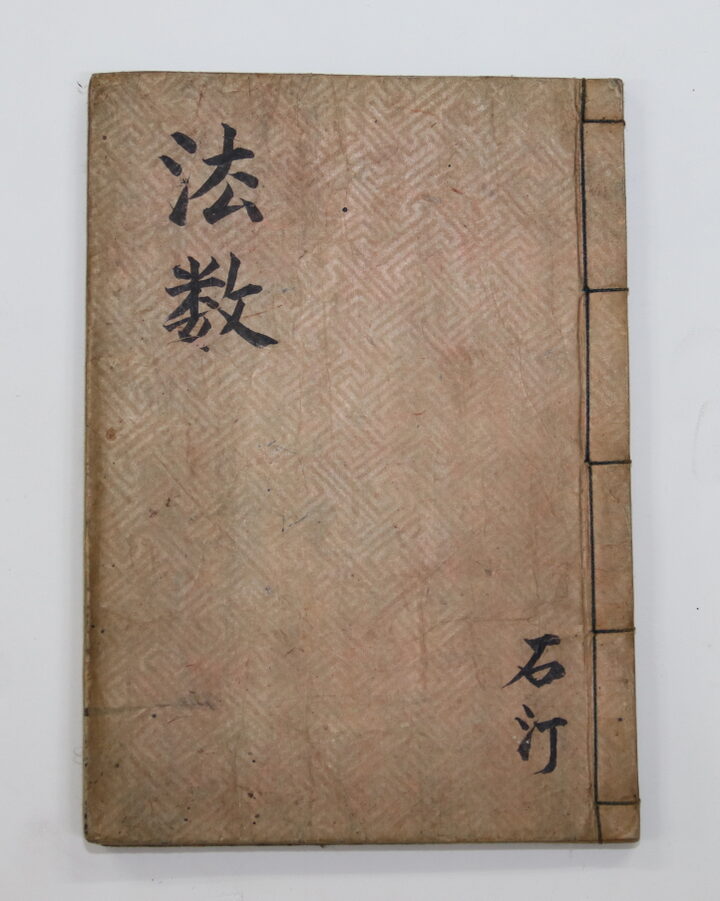 法数
石汀